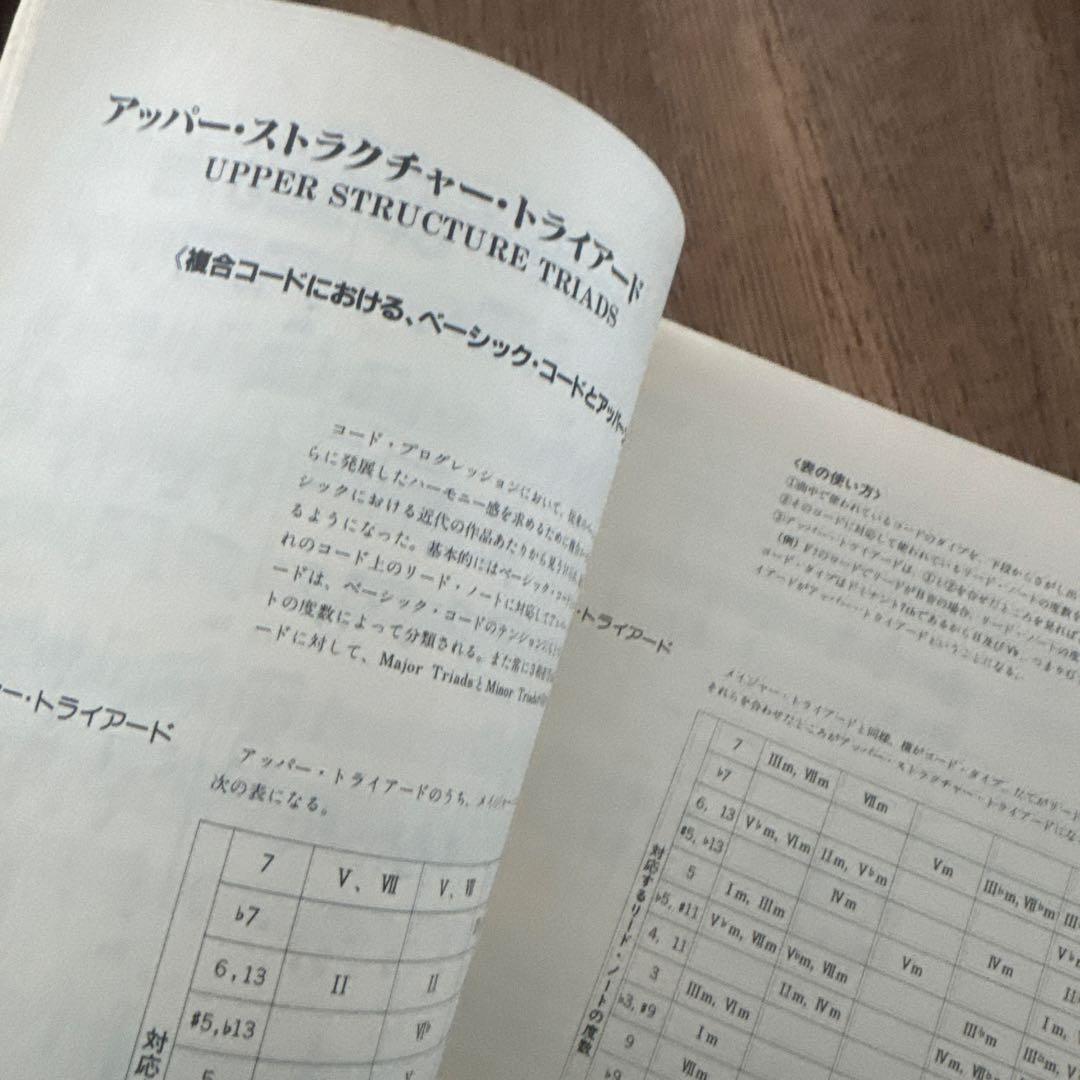 アッパー・ストラクチャー・トライアード
UPPER STRUCTURE TRIADS
《複合コードにおける、ベーシック・コードとアッパー・
コード・プログレッションにおいて、
らに発展したハーモニー感を求めるために複合
シックにおける近代の作品あたりから見うけられ
るようになった。基本的にはベーシック・コード
れのコード上のリード・ノートに対応して
ードは、ベーシック・コードのテンション
トの度数によって分類される。また常に3和音
ードに対して、Major TriadsとMinor Triads
ー・トライアード
アッパー・トライアードのうち、メイジャー
次の表になる。
7 V、Ⅶ V、Ⅵ
♭7
6,13 II II
♯5,♭13 Ⅵ♭
5 V
対応
・トライアード
〈表の使い方〉
①曲中で使われているコードのタイプを、下段からさがし出
②そのコードに対応して使われているリード・ノートの度数を
③アッパー・トライアードは、①と②を合せたところを見れば
(例) F7のコードでリードがB音の場合、リード・ノートの度
コード・タイプはドミナント7thであるからⅡ及びⅤ♭、つまり
イアードがアッパー・トライアードということになる。
メイジャー・トライアードと同様、横がコード・タイプ、たてがリード
それらを合わせたところがアッパー・ストラクチャー・トライアードにな
7 Ⅲm, Ⅶm Ⅶm
♭7 Ⅴm Ⅲ♭m, Ⅶ♭m
6, 13 Ⅴ♭m, Ⅵm Ⅱm, Ⅴ♭m
♯5, ♭13 Ⅳm
5 Ⅰm, Ⅲm
♭5, ♯11 Ⅴ♭m, Ⅶm Ⅴ♭m, Ⅶm
4, 11 Ⅴm Ⅳm
3 Ⅲm, Ⅵm Ⅱm, Ⅳm
♭3, ♯9 Ⅰm Ⅲ♭m
9 Ⅶm Ⅳm, Ⅶ♭m
♭9
対応するリード・ノートの度数